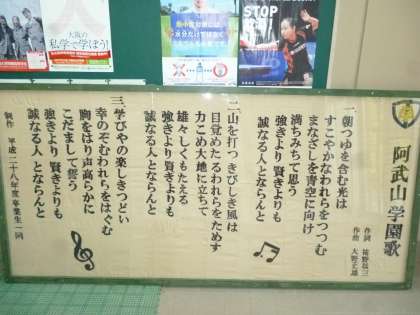 大阪の
私学で学ぼう!
熱中症対策は
水分だけではなく
STOP
阿武山学園歌
作詞 祐野恭三
作曲 大野丈雄
一、朝つゆを含む光は
すこやかなわれらをつつむ
まなざしを青空に向け
満ちみちて思う
強きより賢きよりも
誠なる人とならんと
二、山を打つきびしき風は
目覚めたるわれらをためす
力こめ大地に立ちて
雄々しくもたえる
強きより賢きよりも
誠なる人とならんと
三、学びやの楽しきつどい
幸のぞむわれらをはぐむ
胸をはり声高らかに
こだまして誓う
強きより賢きよりも
誠なる人とならんと
制作 平成二十八年度卒業生一同